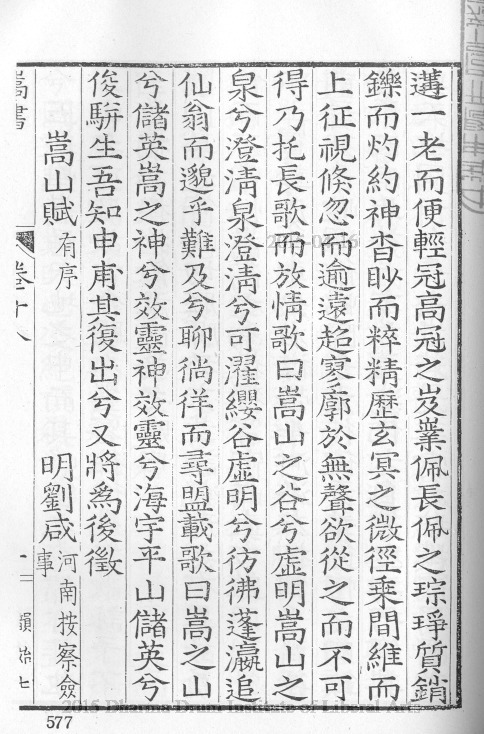 遘一老而便輕冠高冠之岌業佩長佩之琮琤質銷
鑠而灼約神杳眇而粹精歷玄冥之微徑乘間維而
上征視倐忽而逾遠超寥廓於無聲欲從之而不可
得乃托長歌而放情歌曰嵩山之谷兮虛明嵩山之
泉兮澄清泉澄清兮可濯纓谷虛明兮彷彿蓬瀛追
仙翁而邈乎難及兮聊徜徉而尋盟載歌曰嵩之山
兮儲英嵩之神兮效靈神效靈兮海宇平山儲英兮
俊駢生吾知申甫其復出兮又將為後徵
嵩山賦 有序 明劉咸 河南按察僉事
嵩書 卷十八 韻始七
577
2016 Dharma Drum Institute of Liberal Arts